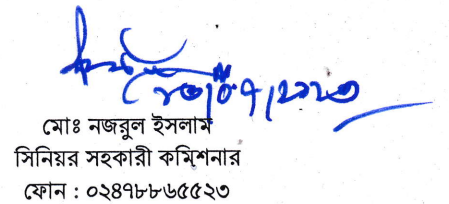 মোঃ নজরুল ইসলাম
সিনিয়র সহকারী কমিশনার
ফোন : ০২৪৭৮৮৬৫৫২৩